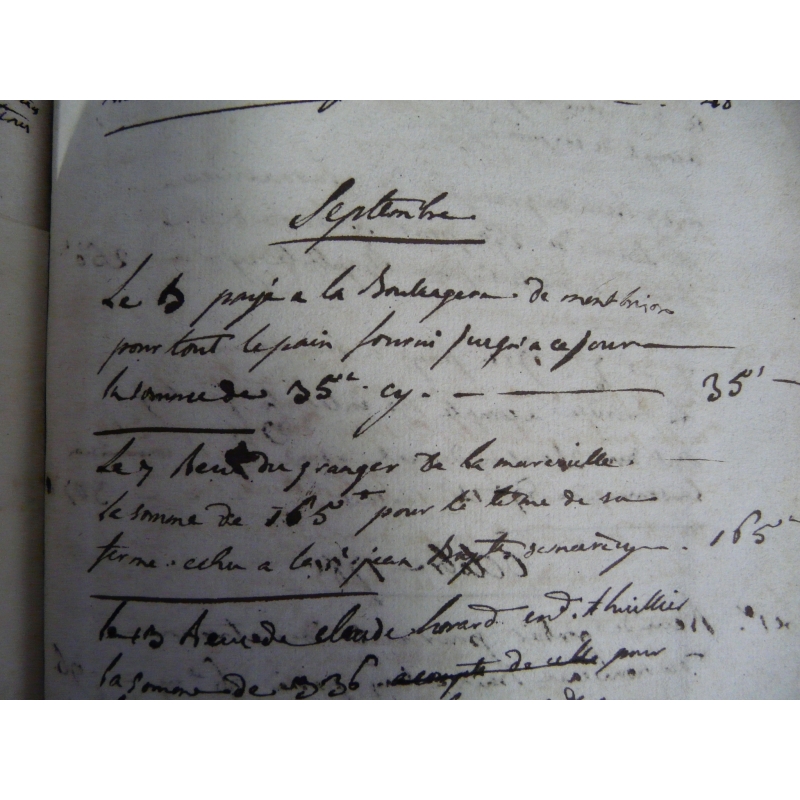 Septembre
Le 3 payé a la Boulangere de montbrison
pour tout le pain fourni jusqu'a ce jour
la somme de 35ᴸ. cy. 35ᴸ
Le 7 Receu du granger de la
la somme de 165ᴸ pour le terme de sa
ferme. echu a la Sᵗ jean 165ᴸ
le 13 Receu de claude
la somme de 336 a compte de celle pour